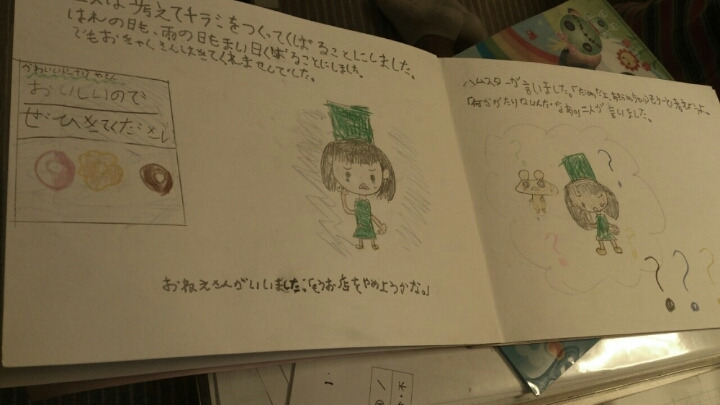 は考えてチラシをつくってくばることにしました。
はれの日も、雨の日もまい日くばることにしました。
でもおきゃくさんはきてくれませんでした。
かわいいドーナツやさん
おいしいので
ぜひきてください
おねえさんがいいました。「もうお店をやめようかな。」
ハムスターが言いました。「だめだよ、あきらめちゃ。もう一ど考えようよ。
「何がたりないんだ
二人が言いました。